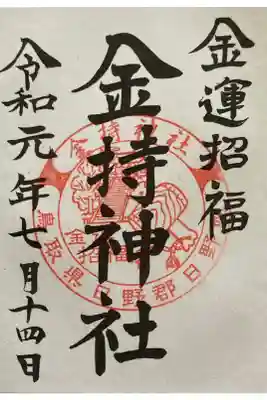 金運招福
金持神社
令和元年七月十四日
金持神社
鳥取県日野郡日野